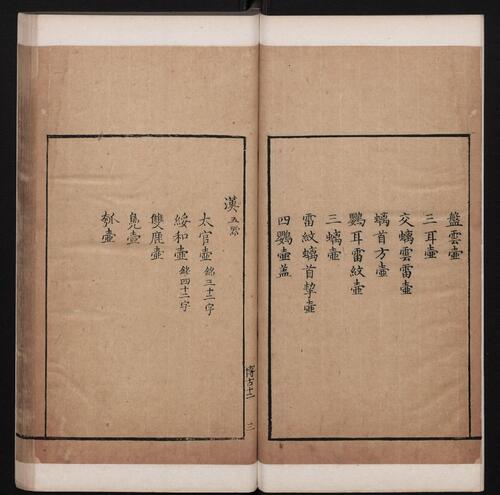 盤雲壺
三耳壺
交螭雲雷壺
螭首方壺
鸚耳雷紋壺
三螭壺
雷紋螭首挈壺
四鸚壺蓋
博古十二 三
漢 五器
太官壺 銘三十二字
綏和壺 銘四十二字
雙鹿壺
鳧壺
瓠壺